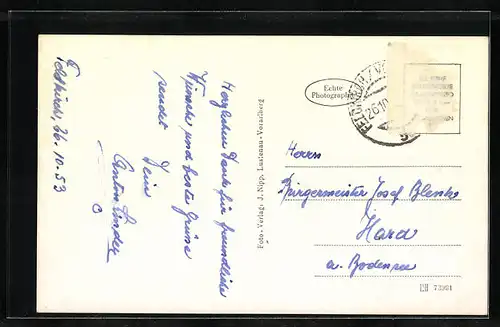 Feldkirch, 26.10.53
Herzlichen Dank für freundliche
Wünsche und beste Grüsse
sendet Dein
Anton Linder
Foto-Verlag: J. Nipp, Lustenau-Vorarlberg
Echte
Photographie
26.10
Herrn
Bürgermeister Josef
Hard
a. Bodensee